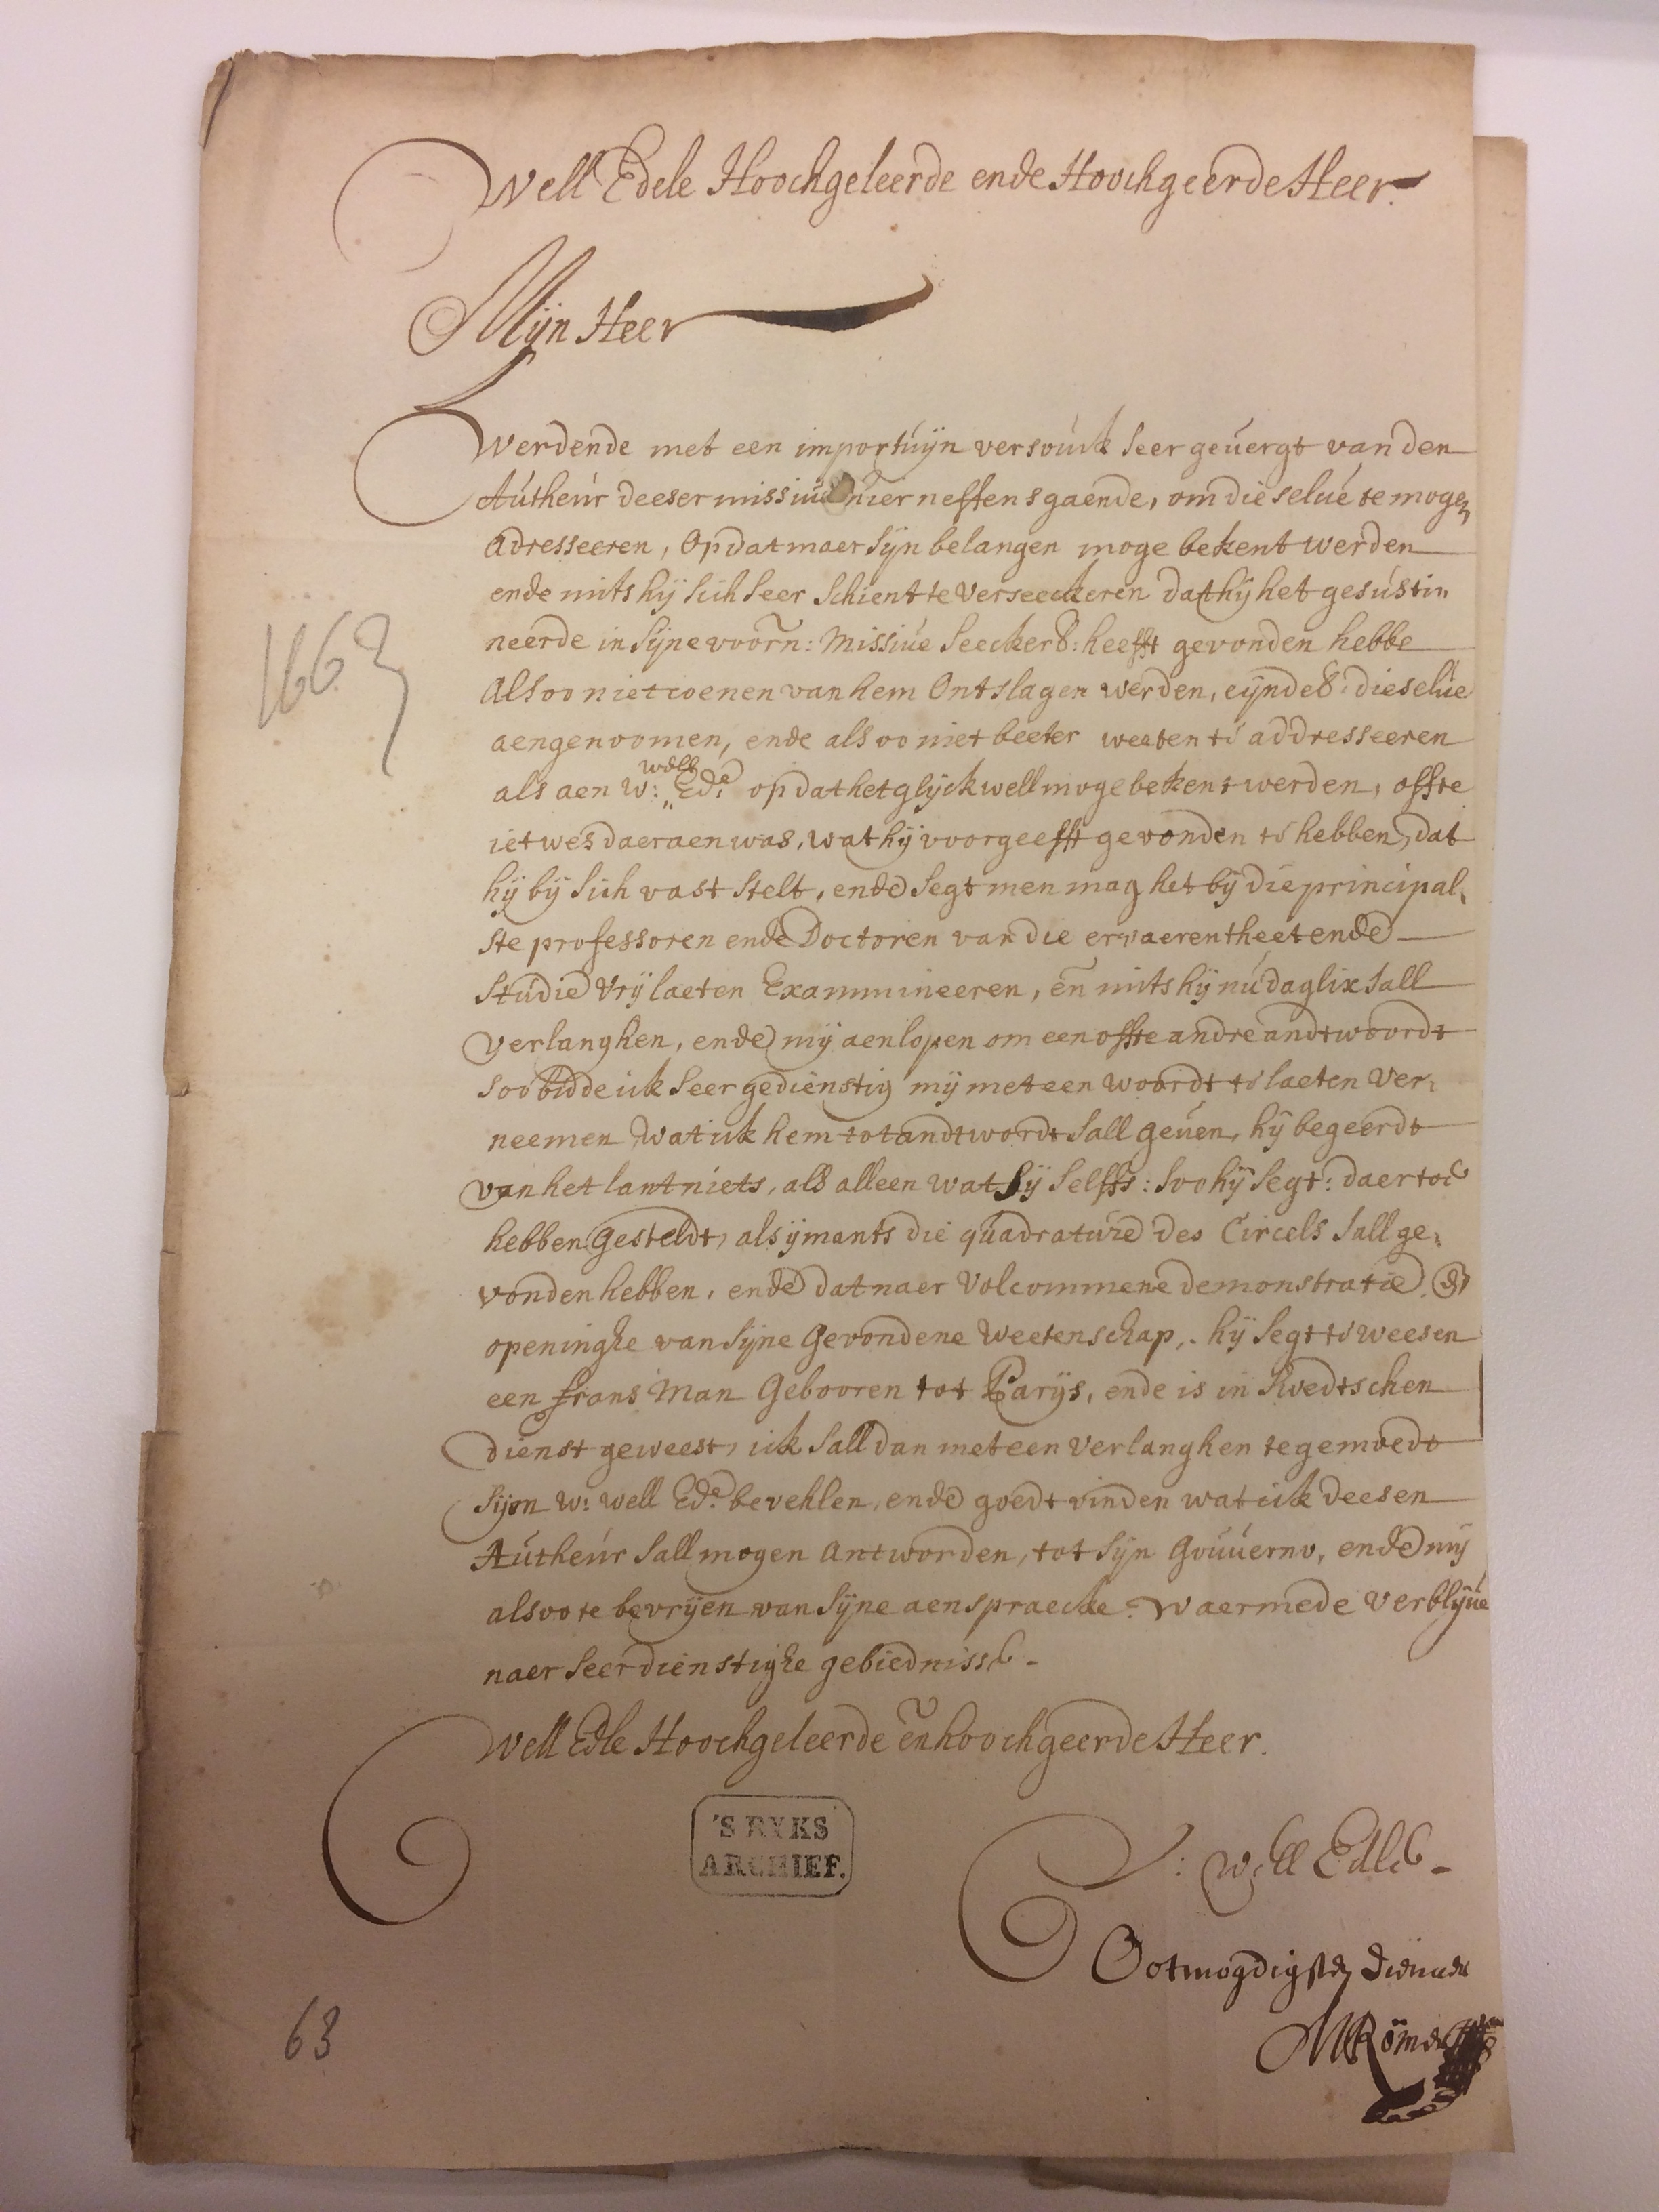 Well Edele Hoochgeleerde ende Hoochgeerde Heer.
Mijn Heer
Werdende met een importúijn versoúck seer geúergt van den
Aútheúr deeser missiúe hier neffens gaende, om die selúe te mogen
adresseeren, Op dat maer sijn belangen moge bekent werden
1663
ende mits hij sich seer schient te verseeckeren dat hij het gesústi„
neerde in sijne voorn: Missiúe seecker: heefft gevonden hebbe
Alsoo niet coenen van hem Ontslagen werden, eijnde: die selúe
aengenoomen, ende alsoo niet beeter weeten te addresseeren
well
als aen W: „ Ede: op dat het glijckwell moge bekent werden, offte
ietwes daer aen was, wat hij voorgeefft gevonden te hebben, dat
hij bij sich vast stelt, ende segt men mag het bij die principal„
ste professoren ende Doctoren van die ervaerentheet ende
Stúdie vrij laeten Exammineeren, en mits hij nú daglix sall
verlanghen, ende mij aenlopen om een offte andre andtwoordt
soo bidde ick seer gedienstig mij met een woordt te laeten ver„
neemen wat ick hem tot andtwordt sall geúen, hij begeerdt
van het lant niets, als alleen wat sij selffs: soo hij segt: daer toe
hebben gesteldt, als ijmants die qúadratúre des Circels sall ge„
vonden hebben, ende dat naer volcommene demonstratie &
openinghe van sijne gevondene weetenschap,. hij segt te weesen
een frans Man Gebooren tot Parijs, ende is in swedtschen
dienst geweest, ick sall dan met een verlanghen tegemoedt
sijen W: well Ede: bevehlen, ende goedt vinden wat ick deesen
Aútheúr sall mogen antworden, tot sijn Goúúerno, ende mij
alsoo te bevrijen van sijne aenspraecke. Waermede verblijúe
naer seer dienstighe gebiednisse -
Well Edle Hoochgeleerde en hoochgeerde Heer.
'S RYKS
ARCHIEF.
: well Edle -
Ootmogdigsten dienaer
63